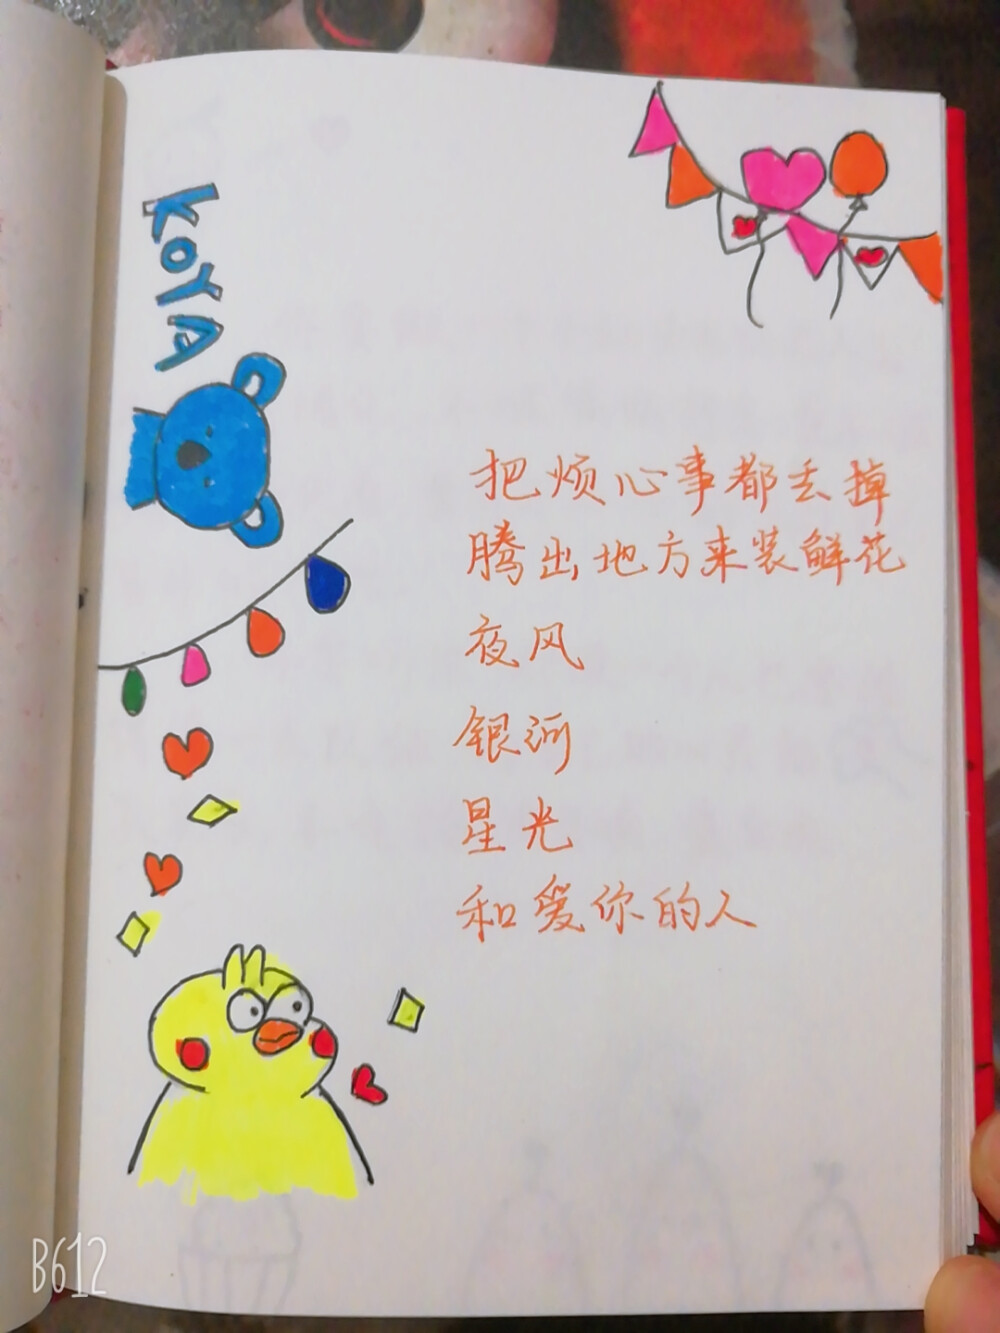 KOYA
把烦心事都丢掉
腾出地方来装鲜花
夜风
银河
星光
和爱你的人
B612